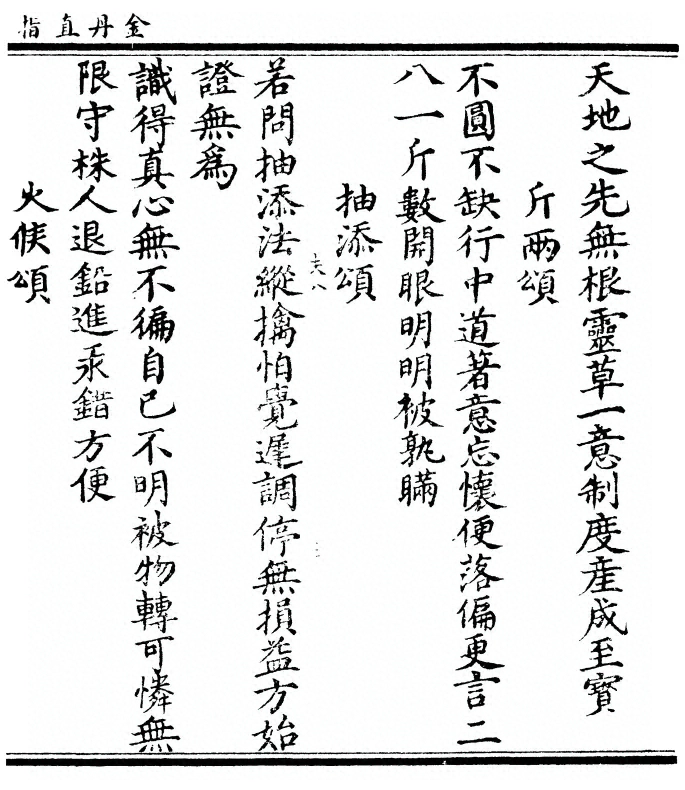 金丹直指
天地之先無根靈草一意制度産成至寶
斤兩頌
不圓不缺行中道著意忘懷便落偏更言二
八一斤數開眼明明被孰瞞
抽添頌
若問抽添法縱擒怕覺遲調停無損益方始
證無爲
識得真心無不徧自己不明被物轉可憐無
限守株人退鉛進汞錯方便
火候頌